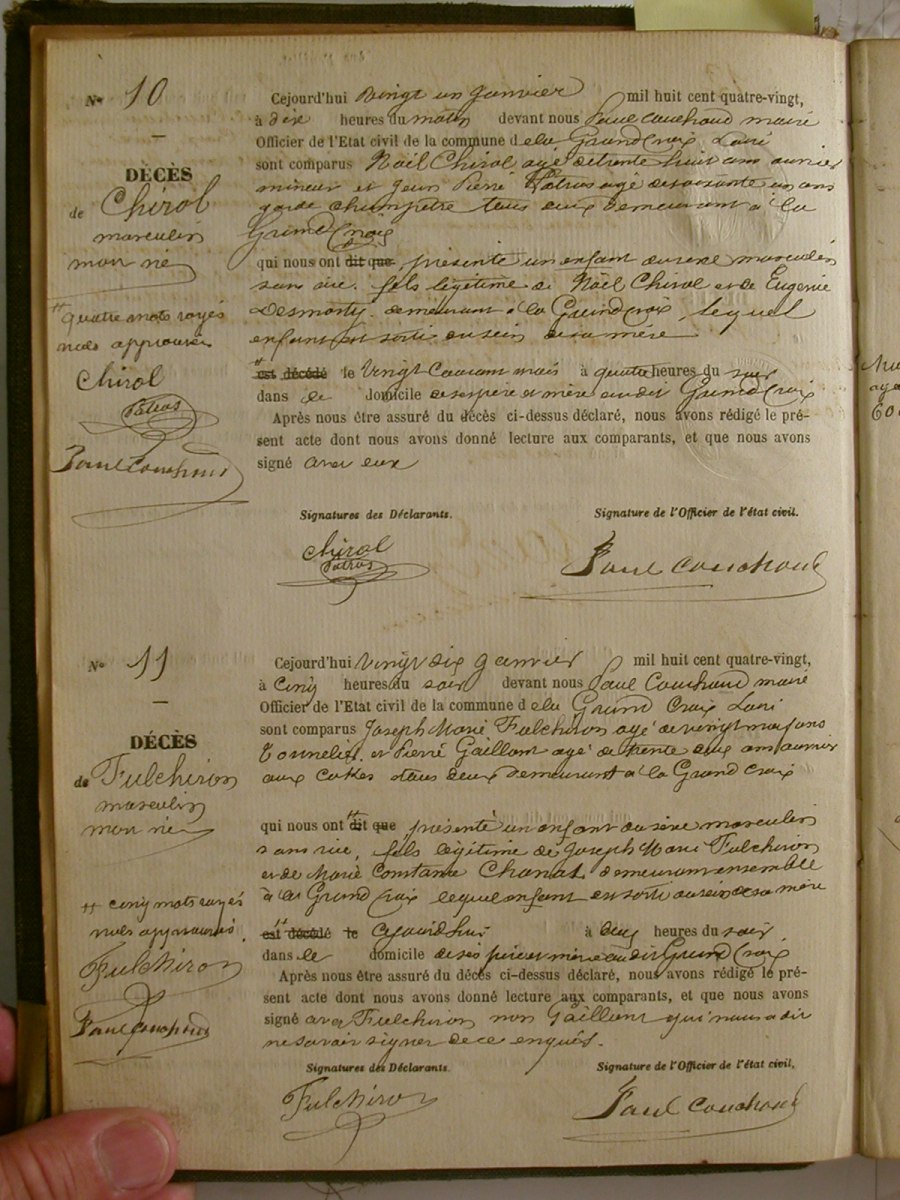 N° 10
DÉCÈS
de Chirol
masculin
mort né
quatre mots rayés
nuls approuvés
Chirol
Patros
Paul Couchoud
Cejourd'hui Vingt un Janvier mil huit cent quatre-vingt,
à dix heures du matin devant nous Paul Couchoud maire
Officier de l'Etat civil de la commune d ela Grand Croix Loire
sont comparus Noël Chirol agé de trente huit ans ouvrier
mineur et Jean Pierre Patros agé de soixante un ans
garde champêtre tous deux demeurant à la
Grand Croix
qui nous ont dit que présenté un enfant du sexe masculin
sans vie. fils légitime de Noël Chirol et de Eugenie
demeurant à la Grand Croix, lequel
enfant est sorti du sein de sa mère
est décédé le Vingt Courant mois à quatre heures du soir
dans le domicile de ses père et mère audit Grand Croix
Après nous être assuré du décès ci-dessus déclaré, nous avons rédigé le pré-
sent acte dont nous avons donné lecture aux comparants, et que nous avons
signé avec eux
Signatures des Déclarants. Signature de l'Officier de l'état civil.
Chirol
Patros
Paul Couchoud
N° 11
DÉCÈS
de Fulchiron
masculin
mort né
cinq mots rayés
nuls approuvés
Fulchiron
Paul Couchoud
Cejourd'hui Vingt six Janvier mil huit cent quatre-vingt,
à Cinq heures du soir devant nous Paul Couchoud maire
Officier de l'Etat civil de la commune d ela Grand Croix Loire
sont comparus Joseph Marie Fulchiron agé de vingt neuf ans
et Pierre Gaillant agé de trente deux ans ouvrier
aux Cokes tous deux demeurant à la Grand Croix
qui nous ont dit que présenté un enfant du sèxe masculin
sans vie, fils légitime de Joseph Marie Fulchiron
et de Marie Constance demeurant ensemble
à la Grand Croix lequel enfant est sorti du sein de sa mère
est décédé le Cejourd'hui à deux heures du soir
dans le domicile de ses père et mère audit Grand Croix
Après nous être assuré du décès ci-dessus déclaré, nous avons rédigé le pré-
sent acte dont nous avons donné lecture aux comparants, et que nous avons
signé avec Fulchiron non Gaillant qui nous a dit
ne savoir signer de ce enquis.
Signatures des Déclarants. Signature de l'Officier de l'état civil,
Fulchiron
Paul Couchoud